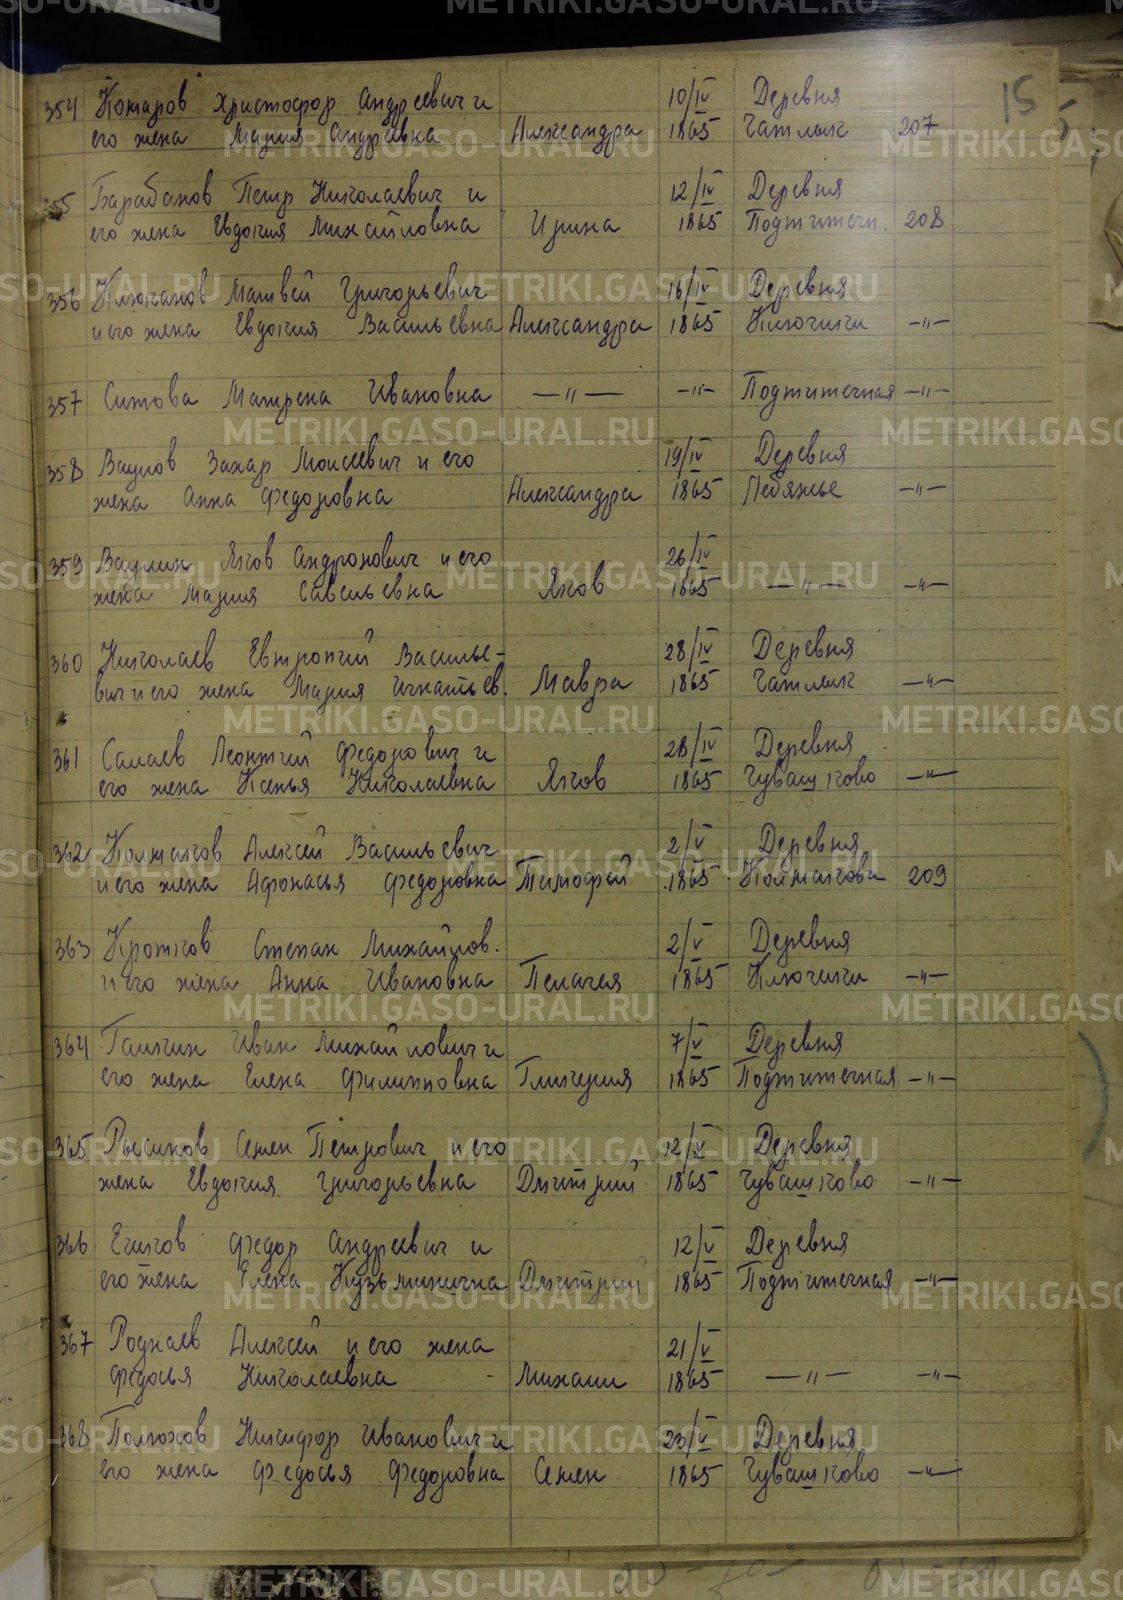 15
354 Комаров Христофор Андреевич и 10/IV Деревня
его жена Мария Андреевна Александра 1865 Чатлык 207
355 Барабанов Петр Николаевич и 12/IV Деревня
его жена Евдокия Михайловна Ирина 1865 Подгитечн. 208
356 Ключанов Матвей Григорьевич 16/IV Деревня
и его жена Евдокия Васильевна Александра 1865 Ключики —"—
357 Ситова Матрена Ивановна —"— —"— Подгитечная —"—
358 Ваулов Захар Моисеевич и его 19/IV Деревня
жена Анна Федоровна Александра 1865 Лебяжье —"—
359 Ваулин Яков Андронович и его 26/IV
жена Мария Савельевна Яков 1865 —"— —"—
360 Николаев Евтропий Василье-
28/IV Деревня
вич и его жена Мария Игнатьев. Мавра 1865 Чатлык —"—
361 Салаев Леонтий Федорович и 28/IV Деревня
его жена Ксенья Николаевна Яков 1865 Чувашково —"—
362 Колмаков Алексей Васильевич 2/V Деревня
и его жена Афонасья Федоровна Тимофей 1865 Колмакова 209
363 Кротков Степан Михайлов. 2/V Деревня
и его жена Анна Ивановна Пелагея 1865 Ключики —"—
364 Галкин Иван Михайлович и 7/V Деревня
его жена Елена Филипповна Гликерия 1865 Подгитечная —"—
365 Семен Петрович и его 12/V Деревня
жена Евдокия Григорьевна Дмитрий 1865 Чувашково —"—
366 Федор Андреевич и 12/V Деревня
его жена Елена Кузьминична Дмитрий 1865 Подгитечная —"—
367 Алексей и его жена 21/V
Федосья Николаевна Михаил 1865 —"— —"—
368 Никифор Иванович и 23/V Деревня
его жена Федосья Федоровна Семен 1865 Чувашково —"—
METRIKI.GASO-URAL.RU